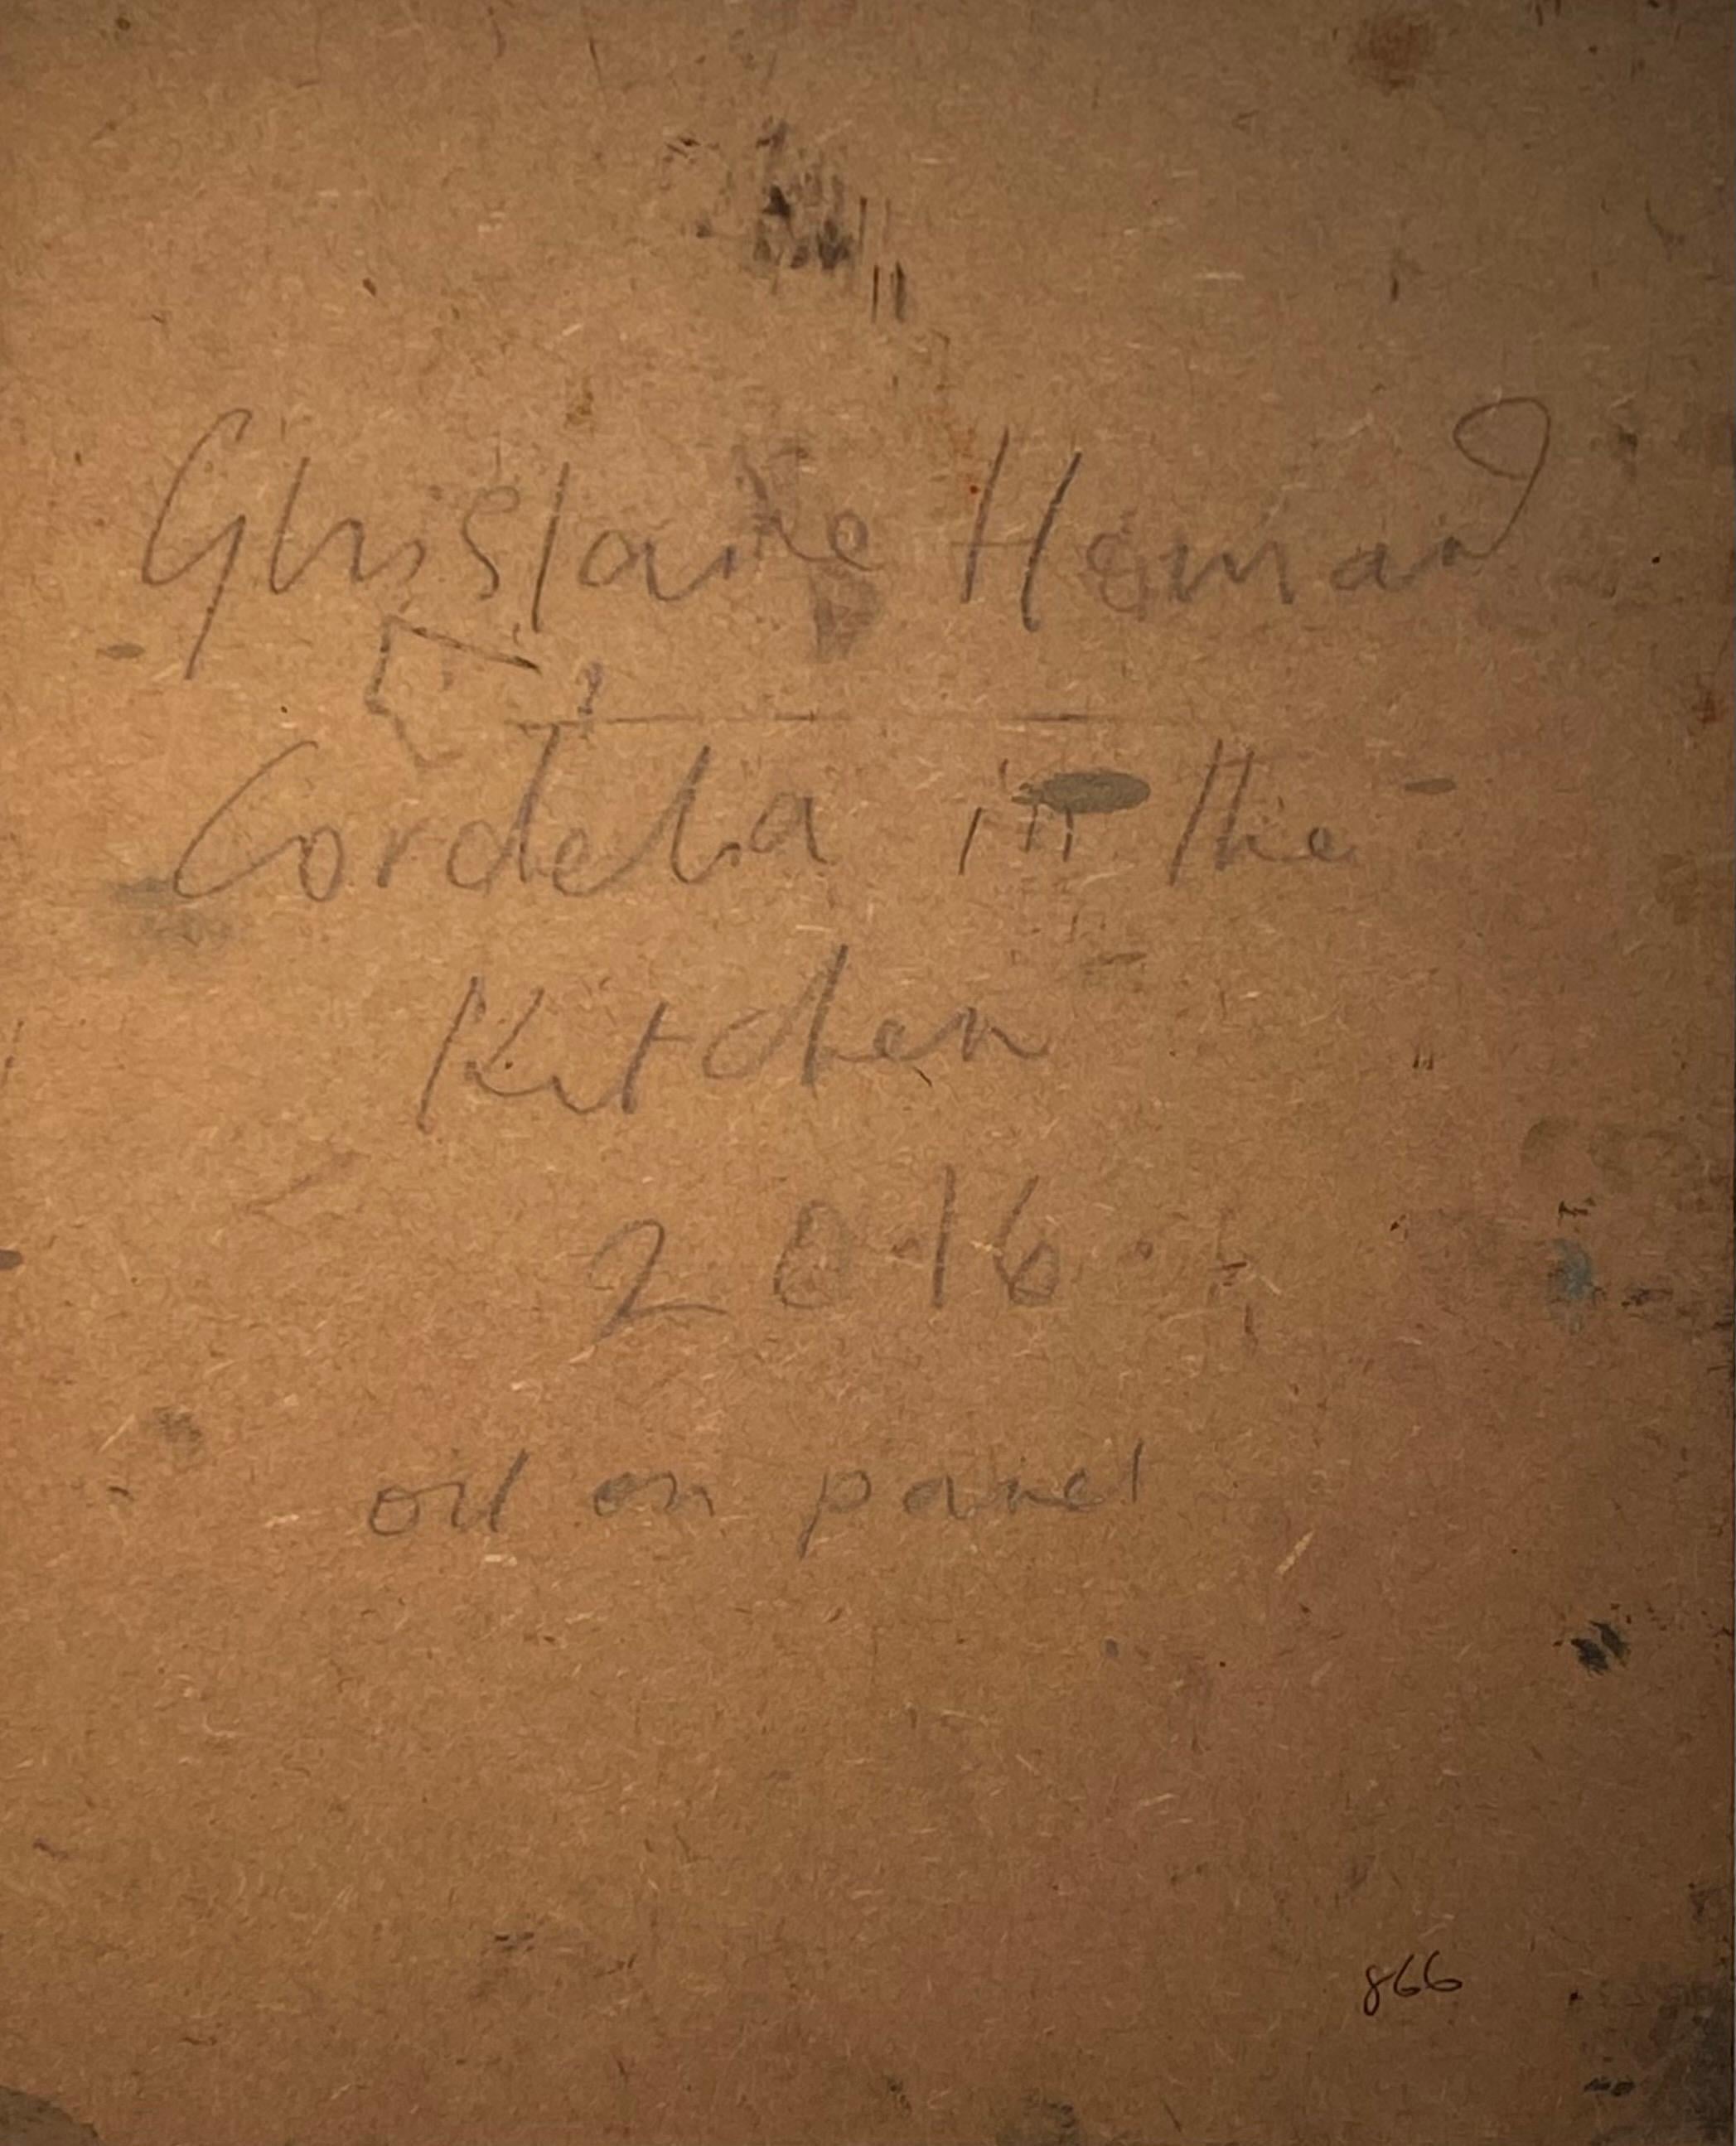 Ghislaine Howard
Cordelia in the
Kitchen
2016
oil on panel
866